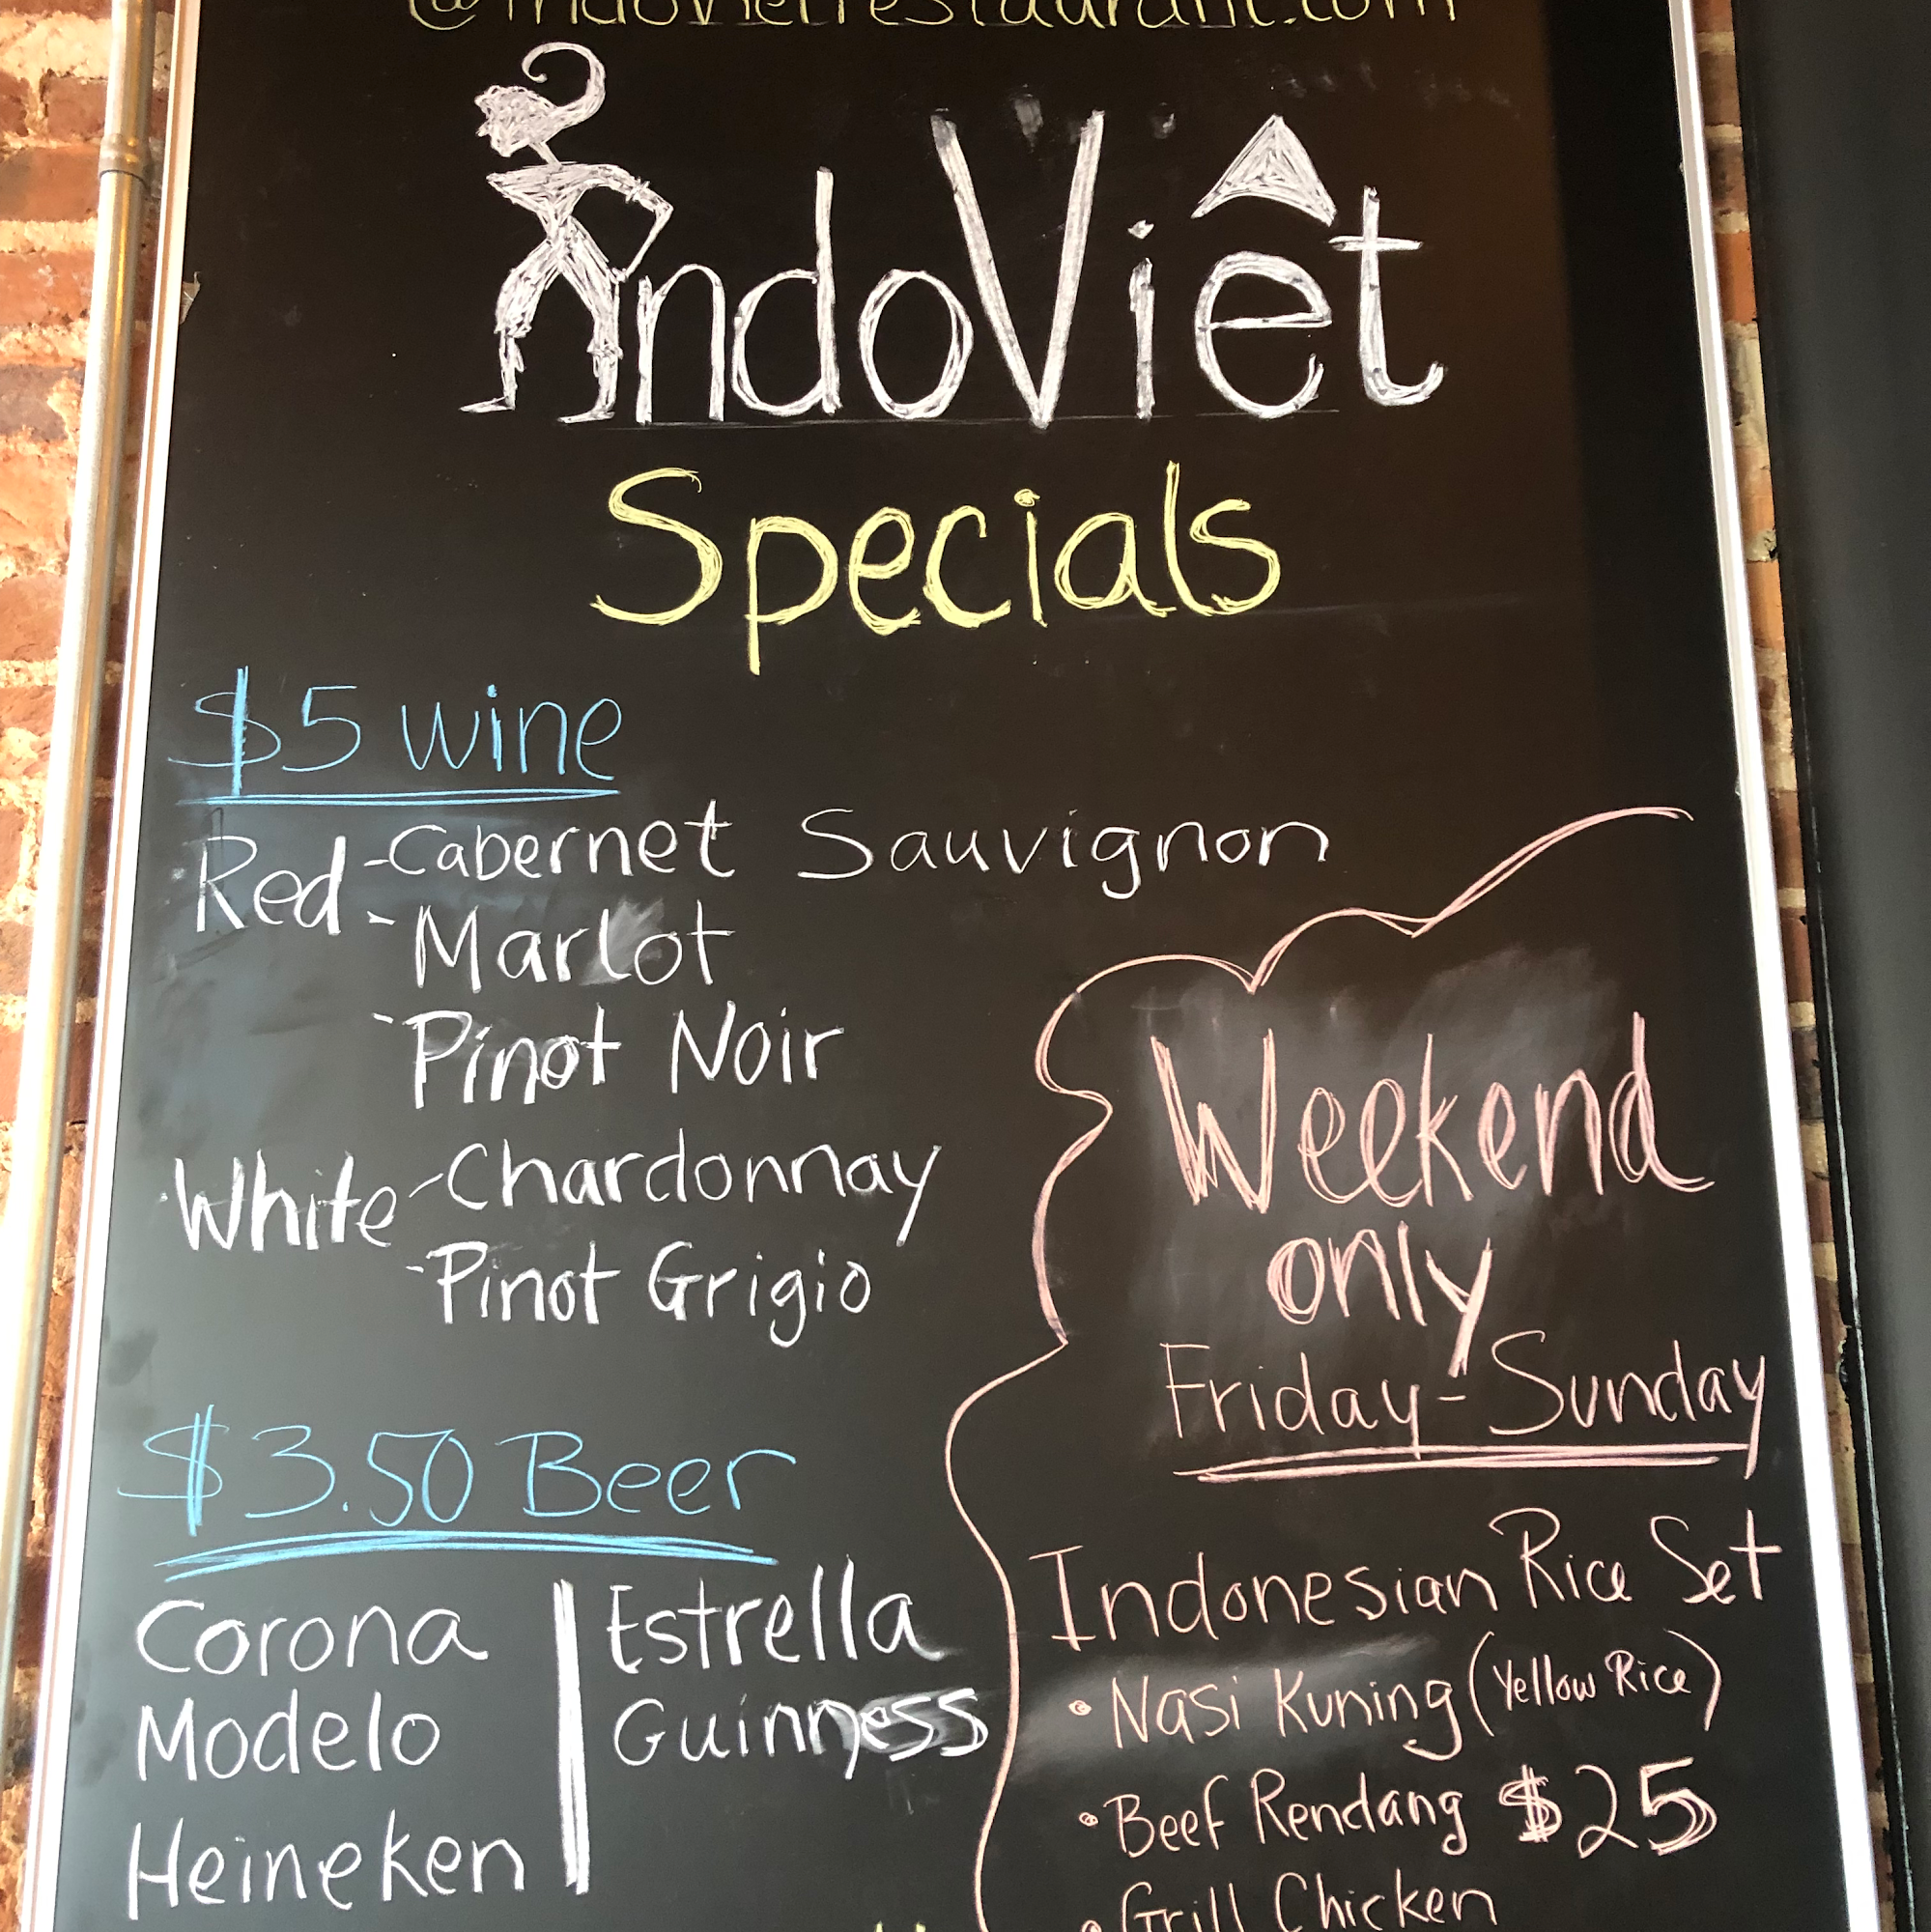 @indovietrestaurant.com
IndoViêt
Specials
$5 wine
Red -Cabernet Sauvignon
-Marlot
-Pinot Noir
White -Chardonnay
-Pinot Grigio
$3.50 Beer
Corona
Modelo
Heineken
Estrella
Guinness
Weekend
only
Friday - Sunday
Indonesian Rice Set
• Nasi Kuning (Yellow Rice)
• Beef Rendang $25
• Grill Chicken